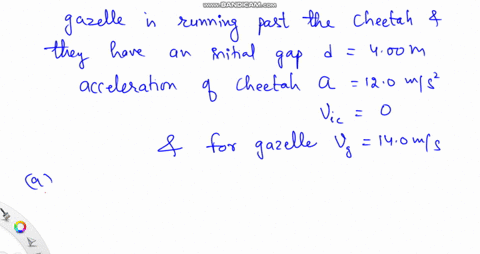 WWW.BANDICAM.COM
gazelle is running past the Cheetah &
they have an initial gap d = 4.00 m
acceleration of cheetah a = 12.0 m/s²
Vic = 0
& for gazelle Vg = 14.0 m/s
(a)